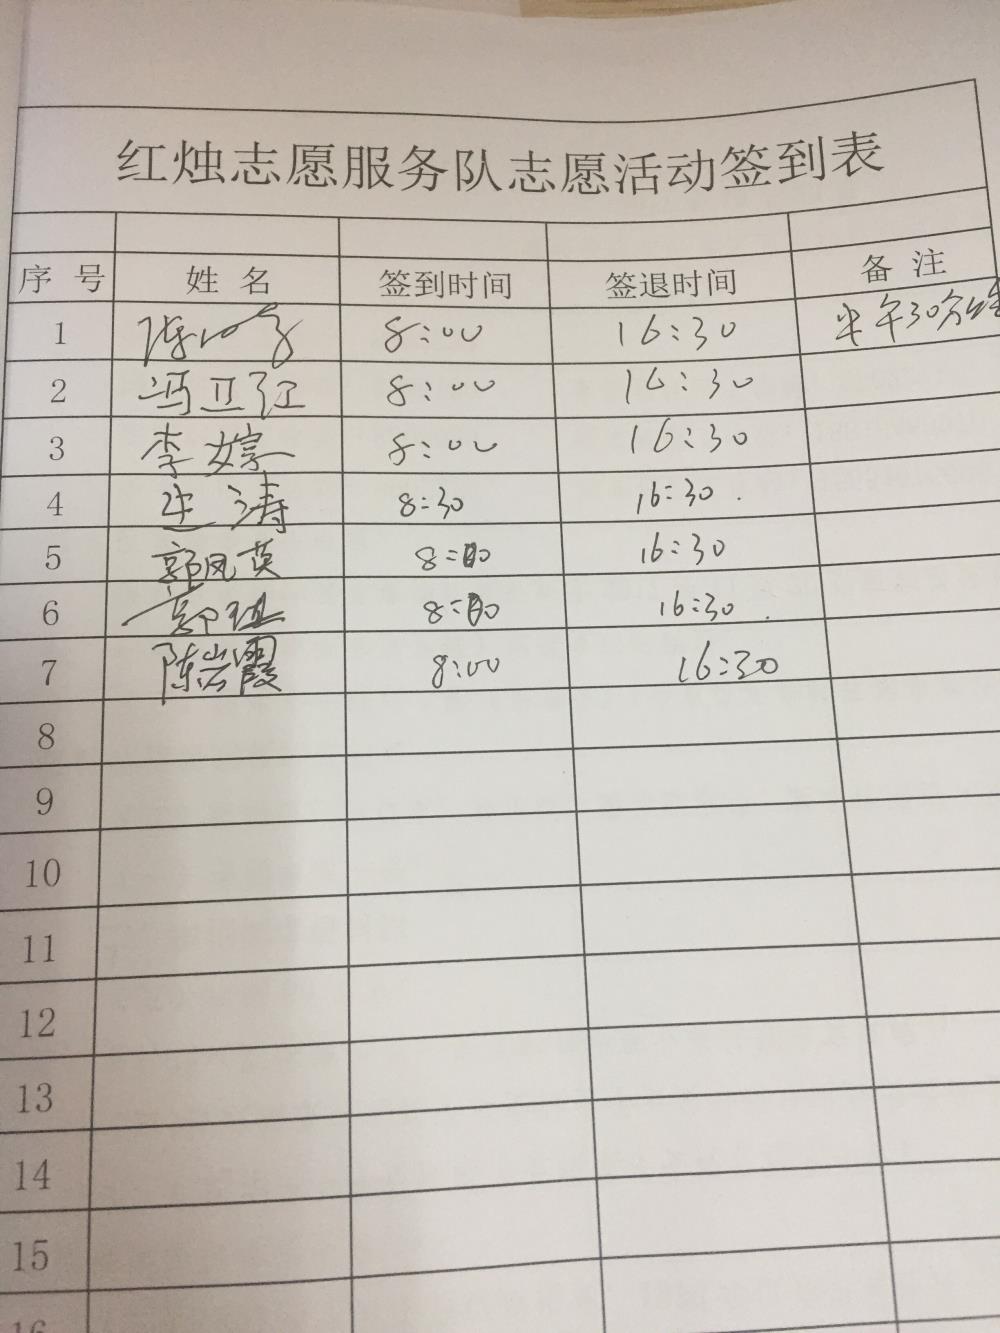 红烛志愿服务队志愿活动签到表
序号 姓名 签到时间 签退时间 备注
1 8:00 16:30 半午30分钟
2 冯卫红 8:00 16:30
3 李婷 8:00 16:30
4 涛 8:30 16:30.
5 郭凤英 8:00 16:30
6 郭 8:00 16:30.
7 陈岩霞 8:00 16:30
8
9
10
11
12
13
14
15
16